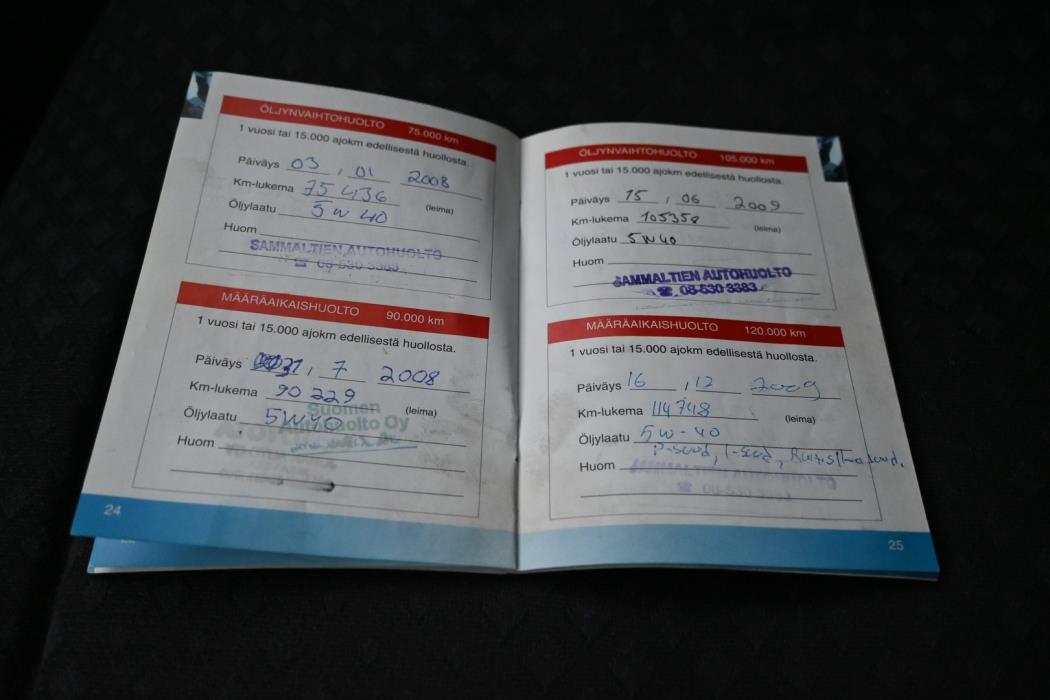 ÖLJYNVAIHTOHUOLTO 75.000 km
1 vuosi tai 15.000 ajokm edellisestä huollosta.
Päiväys 03 , 01 2008
Km-lukema 75 436
(leima)
Öljylaatu 5W40
Huom
SAMMALTIEN AUTOHUOLTO
☎ 08-530 3383
MÄÄRÄAIKAISHUOLTO 90.000 km
1 vuosi tai 15.000 ajokm edellisestä huollosta.
Päiväys 31, 7 2008
Km-lukema 90 229
(leima)
Öljylaatu 5W40
Suomen
Autohuolto Oy
Huom
24
ÖLJYNVAIHTOHUOLTO 105.000 km
1 vuosi tai 15.000 ajokm edellisestä huollosta.
Päiväys 15 , 06 2009
Km-lukema 105358
(leima)
Öljylaatu 5W40
Huom
SAMMALTIEN AUTOHUOLTO
☎ 08-530 3383
MÄÄRÄAIKAISHUOLTO 120.000 km
1 vuosi tai 15.000 ajokm edellisestä huollosta.
Päiväys 16 , 12 2009
Km-lukema 114748
(leima)
Öljylaatu 5W-40
P-suod, I-suod,
Huom
SAMMALTIEN AUTOHUOLTO
☎ 08-530 3383
25